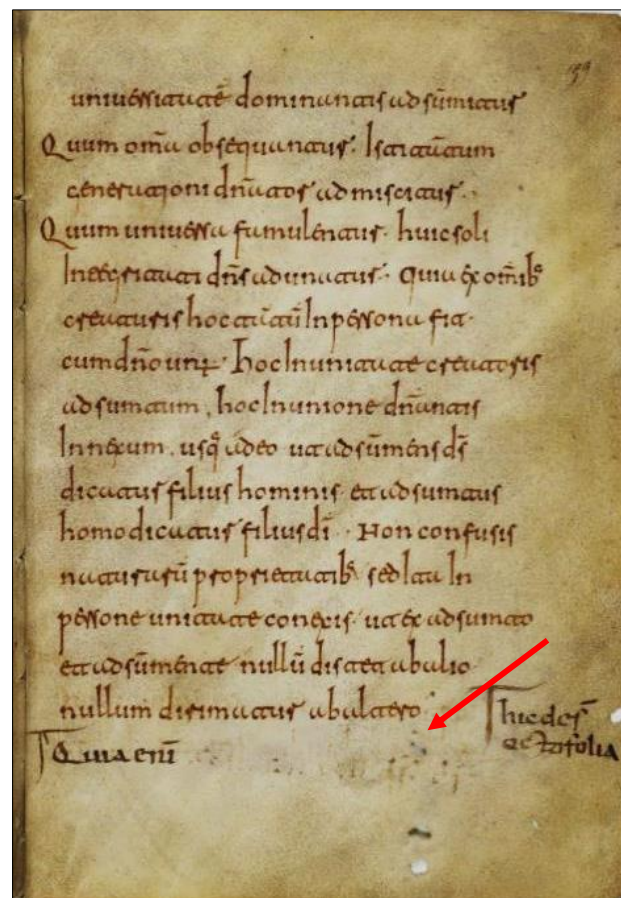 uniuersitatē dominantis adsūmitur
Quum om̄a obsequantur. Ista tātum
generationi dn̄ator admiscitur.
Quum uniuersa famulentur. huic soli
Integritati dn̄s adunatur. Quia ex om̄ib;
creaturis hoc tātū In persona fit
cum dn̄o hoc In unitate creatoris
adsumtum. hoc In unione dn̄antis
Innexum. usq; adeo ut adsūmens ds̄
dicatur filius hominis et adsumtus
homo dicatur filius dī. Non confusis
naturarū proprietatib; sed Ita In
persone unitate conexis. ut ex adsumto
et adsūmente nullū distet ab alio
nullum dirimatur ab altero
hic des̄
folia
Quia enī